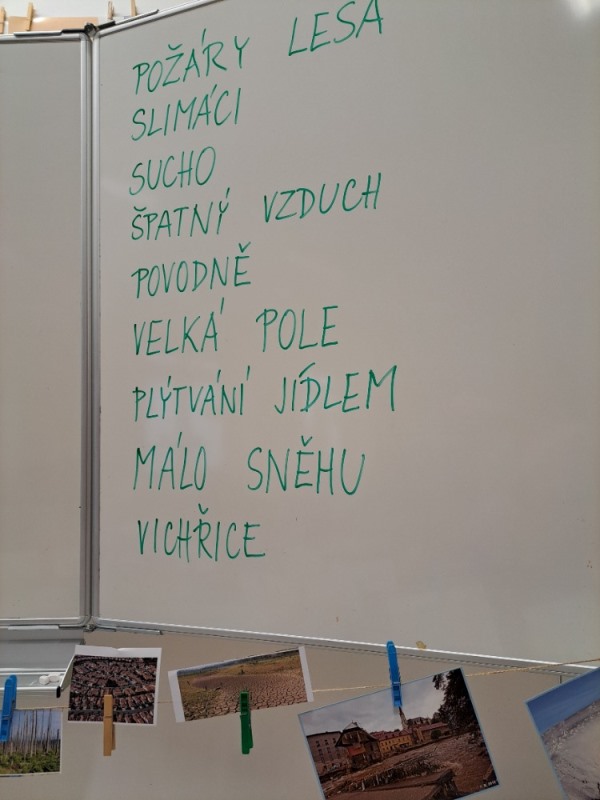 POŽÁRY LESA
SLIMÁCI
SUCHO
ŠPATNÝ VZDUCH
POVODNĚ
VELKÁ POLE
PLÝTVÁNÍ JÍDLEM
MÁLO SNĚHU
VICHŘICE